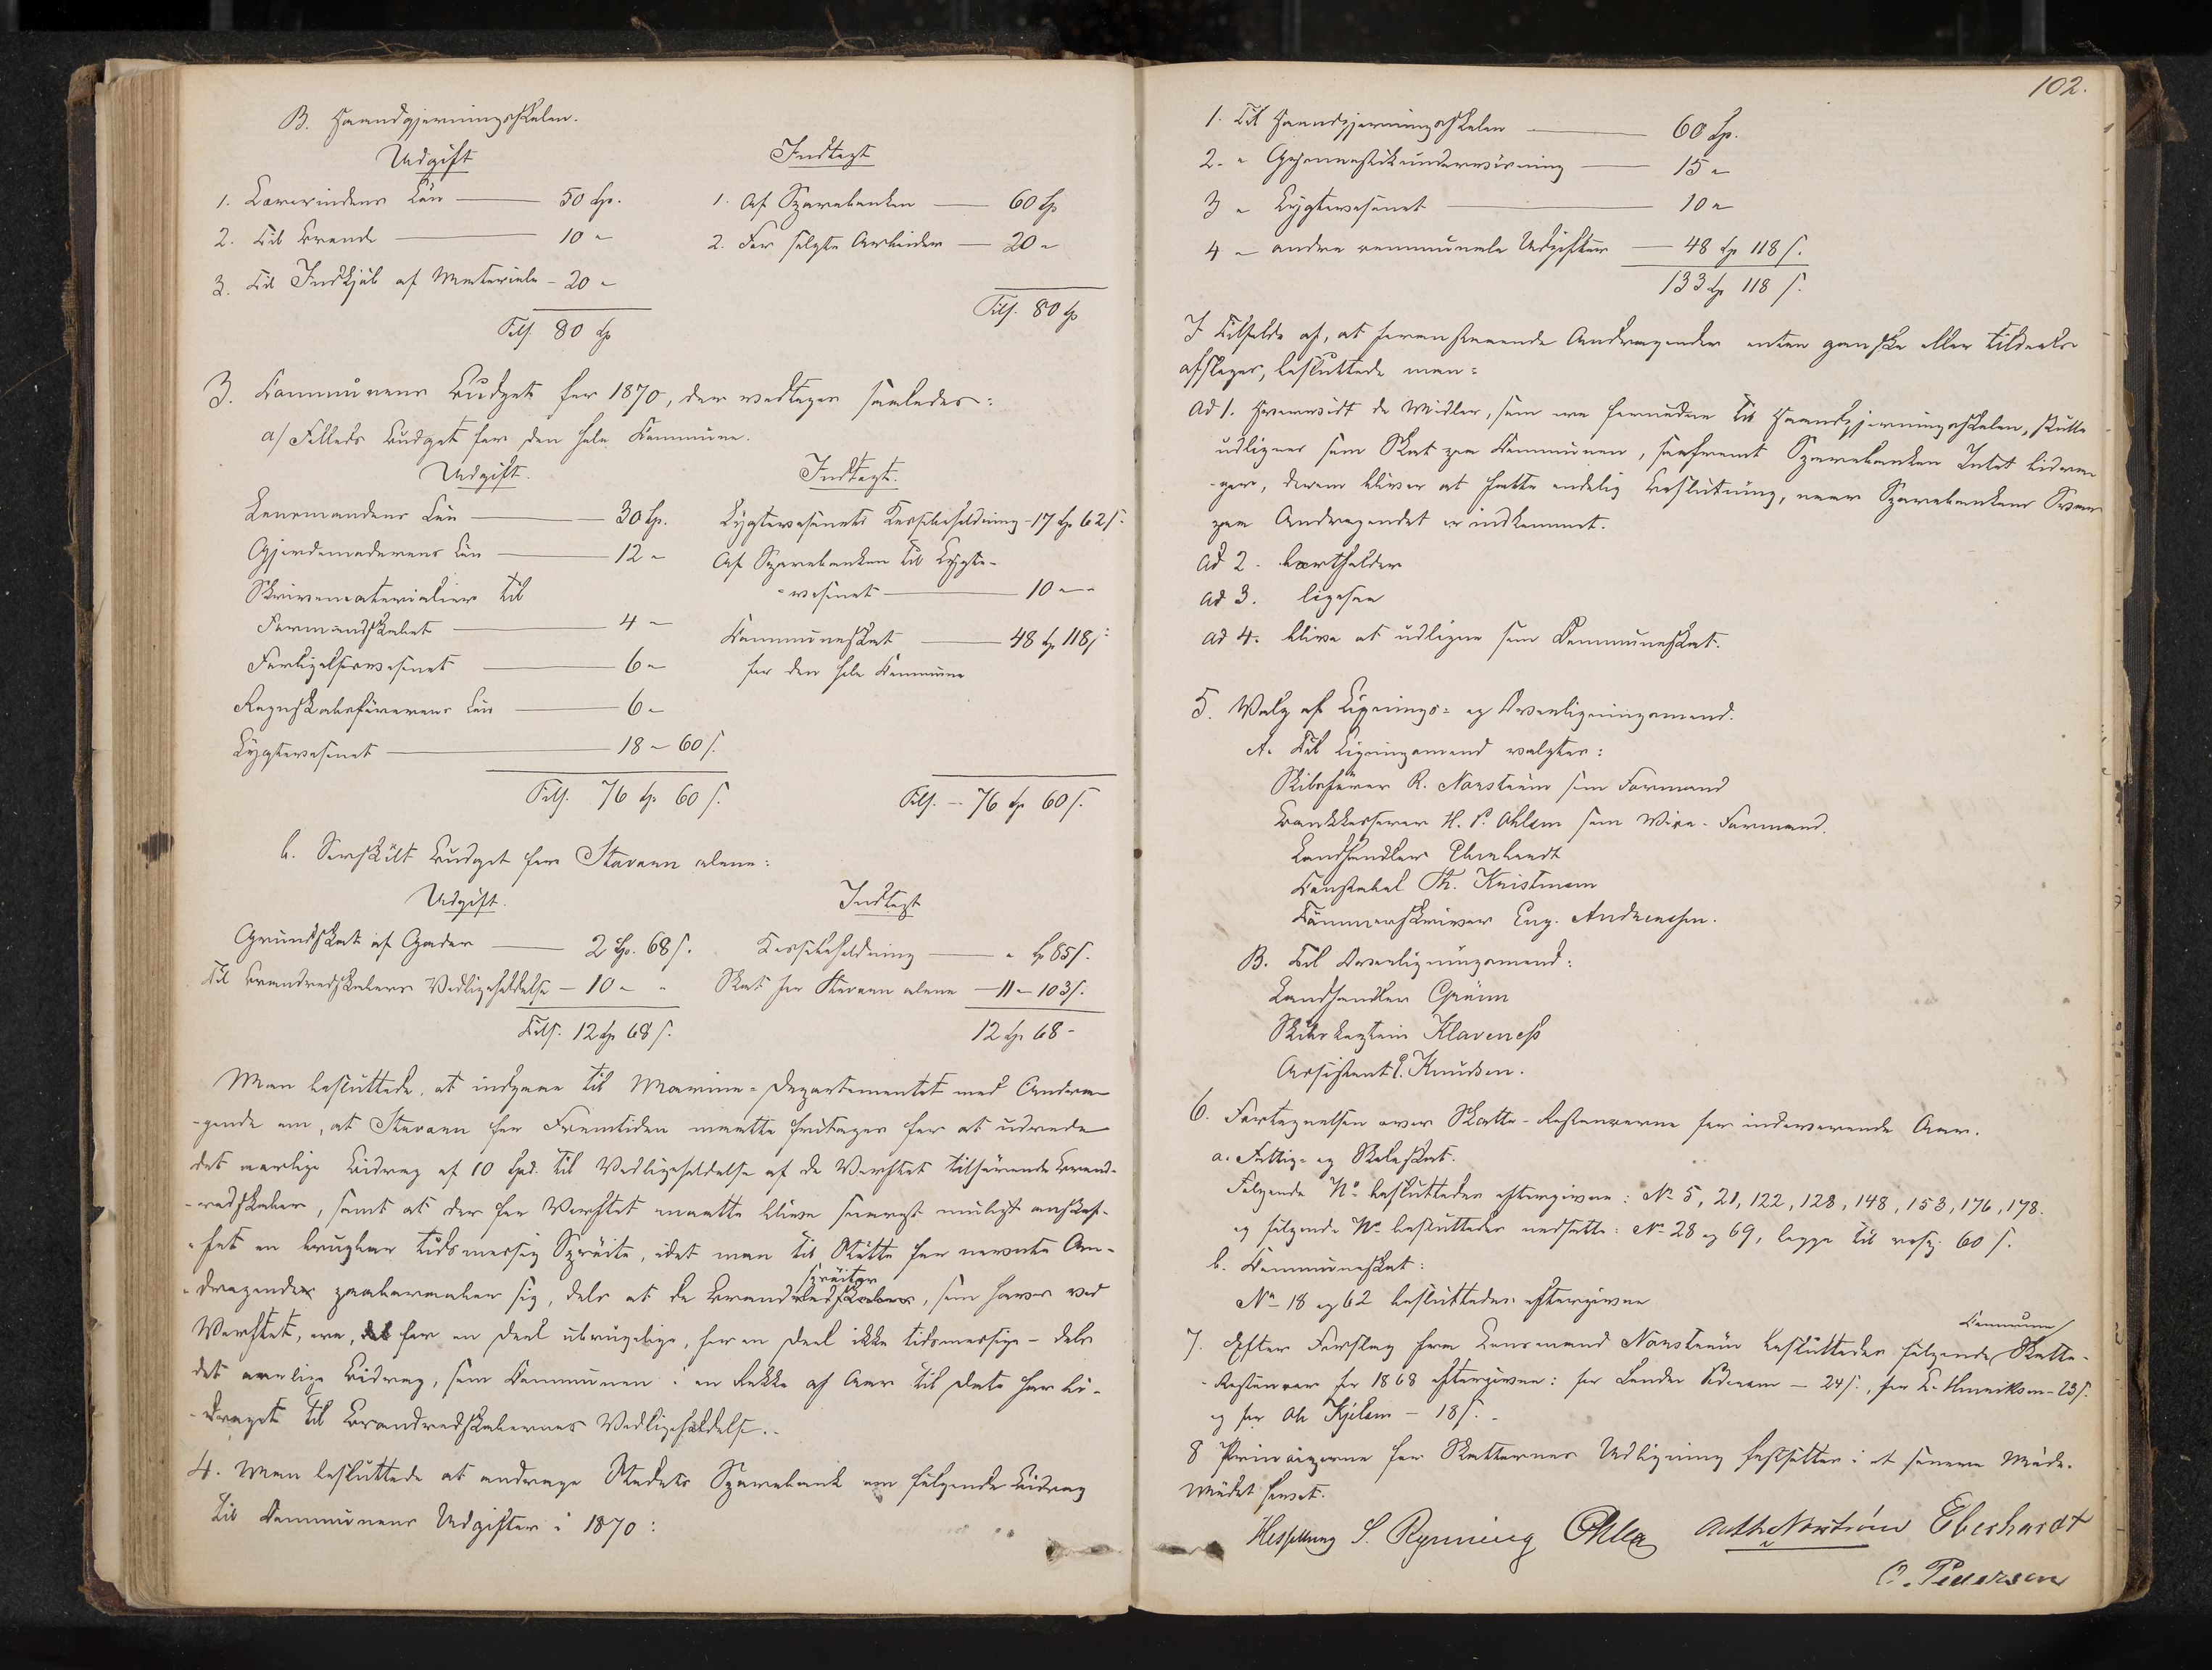 B. Haandgjerningsskolen.
Udgift
1. Lærerindens Løn — 50 Sp.
2. Til Brænde — 10 "
3. Til Indkjøb af Materiale - 20 "
Tils. 80 Sp
Indtægt
1. Af Sparebanken — 60 Sp
2. For solgte Arbeider — 20 "
Tils. 80 Sp
3. Kommunens Budget for 1870, der vedtoges saaledes:
a/ Fælleds Budget for den hele Kommune.
Udgift.
Lensmandens Løn — 30 Sp.
Gjordemoderens Løn — 12 "
Skrivematerialier til
Formandskabet — 4 "
Forligelsesvæsenet — 6 "
Regnskabsførerens Løn — 6 "
Lygtevæsenet — 18 " 60 s.
Tils. 76 Sp 60 s.
Indtægt.
Lygtevæsenets Kassebeholdning - 17 Sp 62 s.
Af Sparebanken til Lygte-
-væsenet — 10 " "
Kommuneskat — 48 Sp 118 s.
for den hele Kommune
Tils. — 76 Sp 60 s.
b. Særskilt Budget for Stavern alene:
Udgift.
Grundskat af Gader — 2 Sp. 68 s.
Til Brandredskabers Vedligeholdelse — 10 " "
Tils. 12 Sp 68 s.
Indtægt
Kassebeholdning — " Sp 85 s.
Skat for Stavern alene — 11 " 103 s.
12 Sp 68 -
Man besluttede, at indgaae til Marine-Departementet med Andra-
-gende om, at Stavern for Fremtiden maatte fritages for at udrede
det aarlige Bidrag af 10 Spd. til Vedligeholdelse af de Værftet tilhørende Brand-
-redskaber, samt at der for Værftet maatte blive snarest muligt anskaf-
-fet en brugbar tidsmæssig Sprøite, idet man til Støtte for nævnte An-
-dragender paaberaaber sig, dels at de Brandredskaber sprøiter, som haves ved
Værftet, ere, for en Deel ubrugelige, for en Deel ikke tidsmæssige - dels
det aarlige Bidrag, som Kommunen i en Række af Aar til Dato har bi-
-draget til Brandredskabernes Vedligeholdelse.-
4. Man besluttede at andrage Stedets Sparebank om følgende Bidrag
til Kommunens Udgifter i 1870:
102.
1. Til Haandgjerningsskolen — 60 Sp.
2. " Gymnastikundervisning — 15 "
3 " Lygtevæsenet — 10 "
4 " andre kommunale Udgifter — 48 Sp 118 s.
133 Sp 118 s.
I Tilfælde af, at foranstaaende Andragender enten ganske eller tildeels
afslages, besluttede man:
Ad 1. Hvorvidt de Midler, som ere fornødne til Haandgjerningsskolen, skulle
udlignes som Skat paa Kommunen, saafremt Sparebanken Intet bidra-
-ger, derom bliver at fatte endelig Beslutning, naar Sparebankens Svar
paa Andragendet er indkommet.
Ad 2. bortfalder
Ad 3. ligesaa
Ad 4. blive at udligne som Kommuneskat.
5. Valg af Lignings- og Overligningsmænd.
A. Til Ligningsmænd valgtes:
Skibsfører R. Norstrøm som Formand
Bankkasserer H. P. Ohlsen som Vice-Formand.
Landhandler Eberhardt
Konstabel Th. Kristensen
Tømmerskriver Eug. Andreassen.
B. Til Overligningsmænd:
Landhandler Grønn
Skibskaptein Klaveness
Assistent P. Knudsen.
6. Fortegnelsen over Skatte-Restancerne for indeværende Aar.
a. Fattig- og Skoleskat.
Følgende No besluttedes eftergivne: No 5, 21, 122, 128, 148, 153, 176, 178.
og følgende No besluttedes nedsatte: No 28 og 69, begge til resp. 60 s.
b. Kommuneskat:
No 18 og 62 besluttedes eftergivne
7. Efter Forslag fra Lensmand Norstrøm besluttedes følgende Kommune Skatte-
-Restancer for 1868 eftergivne: for Pedersen - 24 s., for L. Henriksen - 23 s.
og for Ole Kjelsen - 18 s. -
8 Principerne for Skatternes Udligning fastsættes i et senere Møde.
Mødet hævet.
Hesselberg S. Rynning Ohlsen Norstrøm Eberhardt
O. Pedersen